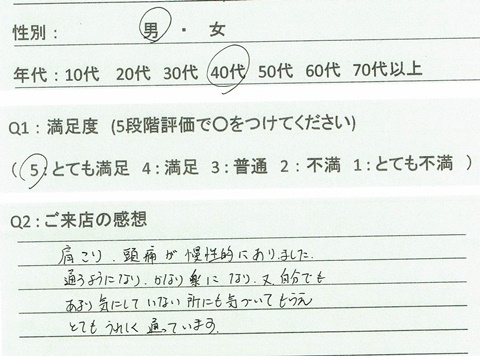 性別： 男 ・ 女
年代：10代 20代 30代 40代 50代 60代 70代以上
Q1：満足度 (5段階評価で〇をつけてください)
( 5：とても満足 4：満足 3：普通 2：不満 1：とても不満 )
Q2：ご来店の感想
肩こり、頭痛が慢性的にありました。
通うようになり、かなり楽になり、又、自分でも
あまり気にしていない所にも気づいてもらえ
とてもうれしく通っています。